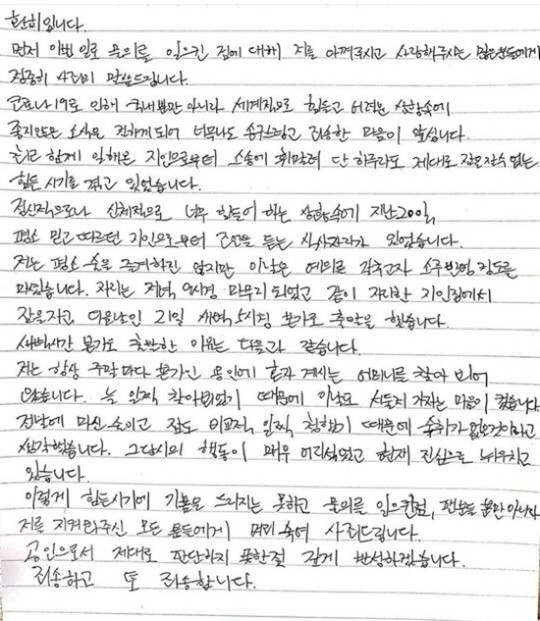 환희입니다.
먼저 이번 일로 물의를 일으킨 점에 대해 저를 아껴주시고 사랑해주시는 많은분들에게
정중히 사과의 말씀드립니다.
코로나19로 인해 국내뿐만 아니라 세계적으로 힘들고 어려운 상황속에
좋지않은 소식을 전하게되어 너무나도 송구스럽고 죄송한 마음이 앞섭니다.
최근 함께 일해온 지인으로부터 소송에 휘말려 단 하루라도 제대로 잠을잘수 없는
힘든 시기를 겪고 있었습니다.
정신적으로나 신체적으로 너무 힘들어 하는 상황속에 지난 20일,
평소 믿고 따르던 지인으로부터 조언을 듣는 식사자리가 있었습니다.
저는 평소 술을 즐겨하진 않지만 이날은 예의로 갖추고자 소주 반병 정도를
마셨습니다. 자리는 저녁 9시경 마무리 되었고 같이 자리한 지인집에서
잠을자고 다음날인 21일 새벽 5시경 본가로 출발을 했습니다.
새벽시간 본가로 출발한 이유는 다음과 같습니다.
저는 항상 주말마다 본가인 용인에 혼자 계시는 어머니를 찾아 뵈어
왔습니다. 늘 일찍 찾아뵈었기 때문에 이날도 서둘러 가자는 마음이 컸습니다
전날에 마신 술이고 잠도 비교적 일찍 청했기 때문에 숙취가 없을것이라고
생각했습니다. 그당시의 행동이 매우 어리석었고 현재 진심으로 뉘우치고
있습니다.
이렇게 힘든시기에 기쁨을 드리지는 못하고 물의를 일으킨점, 팬분들 뿐만 아니라
저를 지켜봐주신 모든 분들에게 머리 숙여 사죄드립니다.
공인으로서 제대로 판단하지 못한점 깊게 반성하겠습니다.
죄송하고 또 죄송합니다.